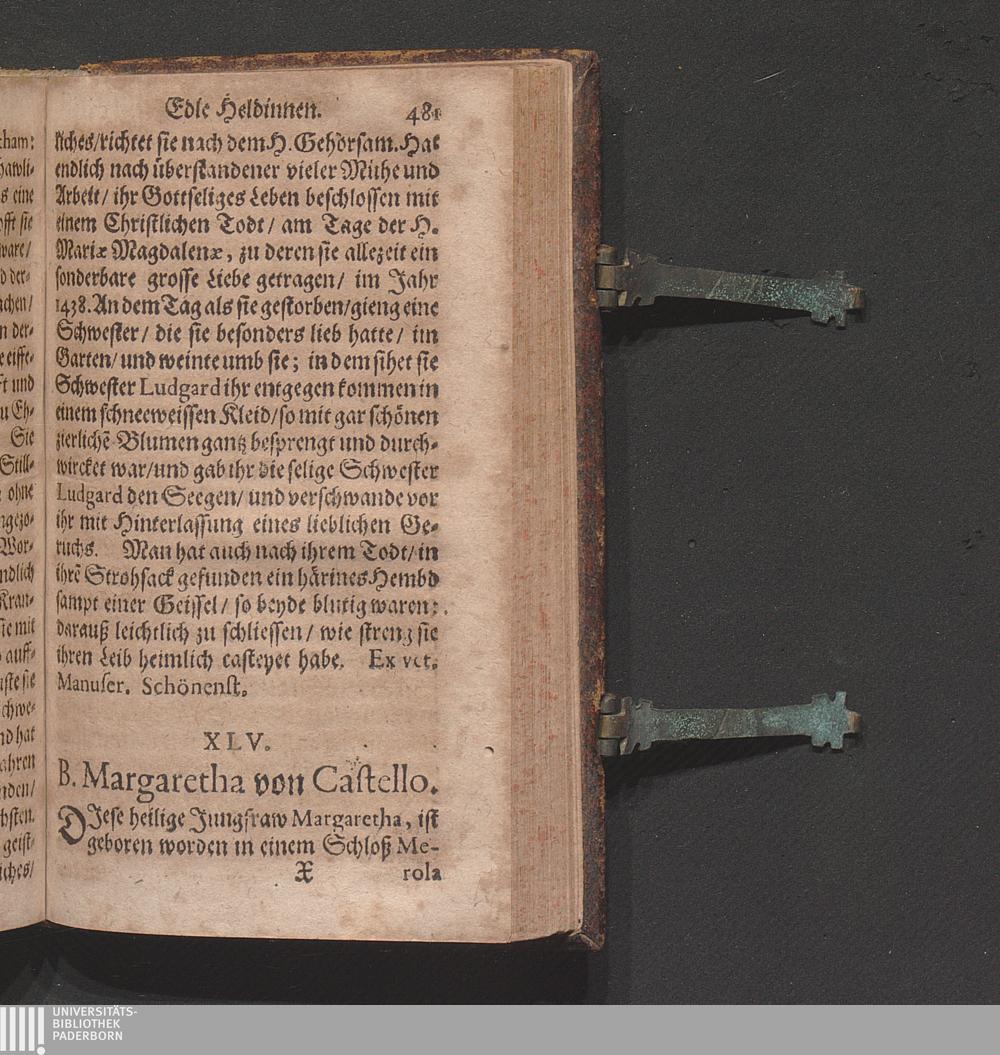 Edle Heldinnen. 481
liches/richtet sie nach dem H. Gehorsam. Hat
endlich nach überstandener vieler Mühe und
Arbeit/ ihr Gottseliges Leben beschlossen mit
einem Christlichen Todt/ am Tage der H.
Mariæ Magdalenæ, zu deren sie allezeit ein
sonderbare grosse Liebe getragen/ im Jahr
1438. An dem Tag als sie gestorben/gieng eine
Schwester/ die sie besonders lieb hatte/ im
Garten/ und weinte umb sie; in dem sihet sie
Schwester Ludgard ihr entgegen kommen in
einem schneeweissen Kleid/so mit gar schönen
zierlichẽ Blumen gantz besprengt und durch-
wircket war/und gab ihr die selige Schwester
Ludgard den Seegen/ und verschwande vor
ihr mit Hinterlassung eines lieblichen Ge-
ruchs. Man hat auch nach ihrem Todt/in
ihrẽ Strohsack gefunden ein härines Hembd
sampt einer Geissel/ so beyde blutig waren;
darauß leichtlich zu schliessen/ wie streng sie
ihren Leib heimlich casteyet habe. Ex vet.
Manuscr. Schönenst.
XLV.
B. Margaretha von Castello.
DIese heilige Jungfraw Margaretha, ist
geboren worden in einem Schloß Me-
X rola
tham:
hawli-
s eine
offt sie
ware/
d der-
achen/
n der-
e eiffe-
ft und
zu Eh-
Sie
Still-
ohne
ngezo-
Wor-
ndlich
Kran-
sie mit
auff-
uste sie
chwe-
nd hat
ahren
nden/
chsten.
geist-
liches/
UNIVERSITÄTS-
BIBLIOTHEK
PADERBORN